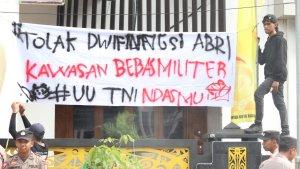 #TOLAK DWIFINNGSI ABRI
KAWASAN BEBAS MILITER
##UU TNI NDASMU